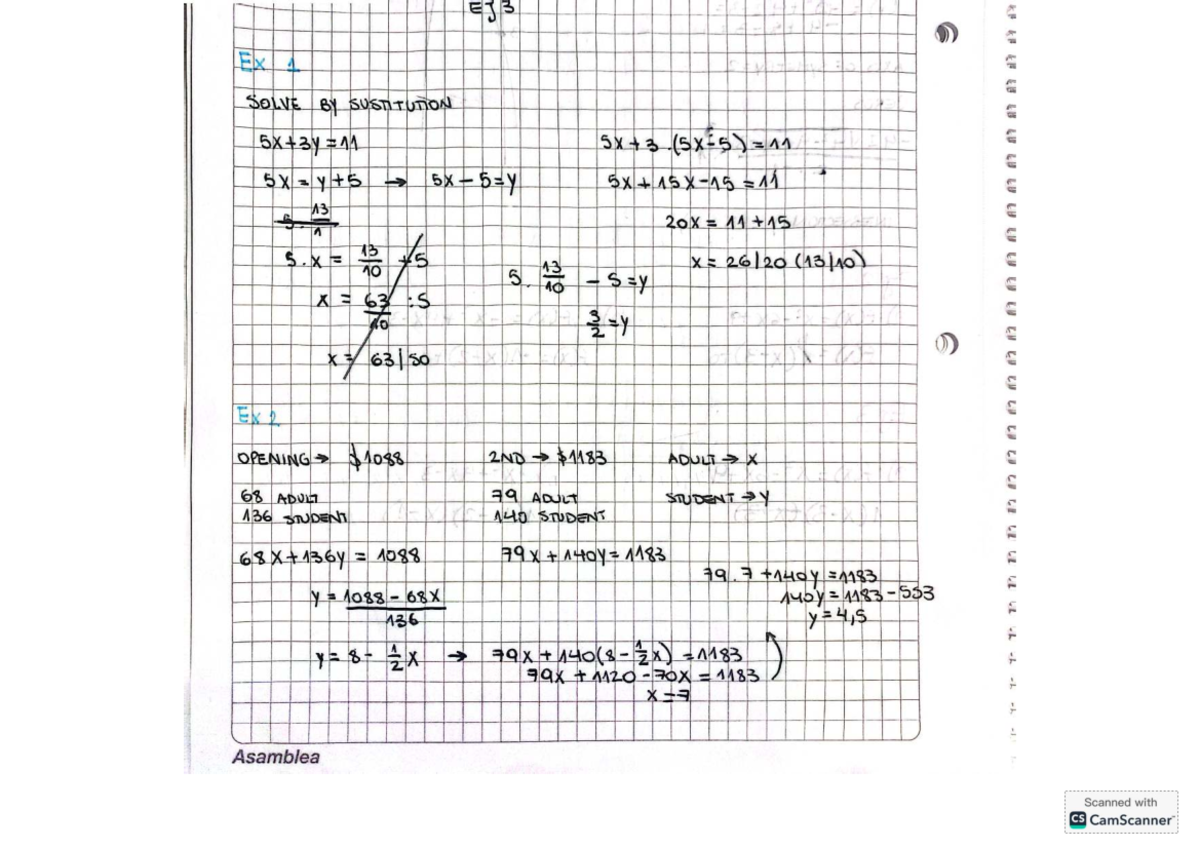 EJ3
Ex 1
SOLVE BY SUSTITUTION
5x+3y=11
5x = y+5 → 5x-5=y
5. 13/1
5.x = 13/10 +5
x = 63/10 :5
x = 63/50
5. 13/10 - 5=y
3/2 =y
5x+3.(5x-5)=11
5x+15x-15=11
20x = 11+15
x = 26/20 (13/10)
Ex 2
OPENING → $1088
68 ADULT
136 STUDENT
2ND → $1183
79 ADULT
140 STUDENT
ADULT → X
STUDENT → Y
68x+136y = 1088
y = 1088-68x/136
y = 8 - 1/2 x → 79x+140(8-1/2 x) = 1183
79x + 140y = 1183
79x +1120-70x = 1183
x=7
79.7+140y=1183
140y=1183-553
y=4,5
Asamblea
Scanned with
CS CamScanner